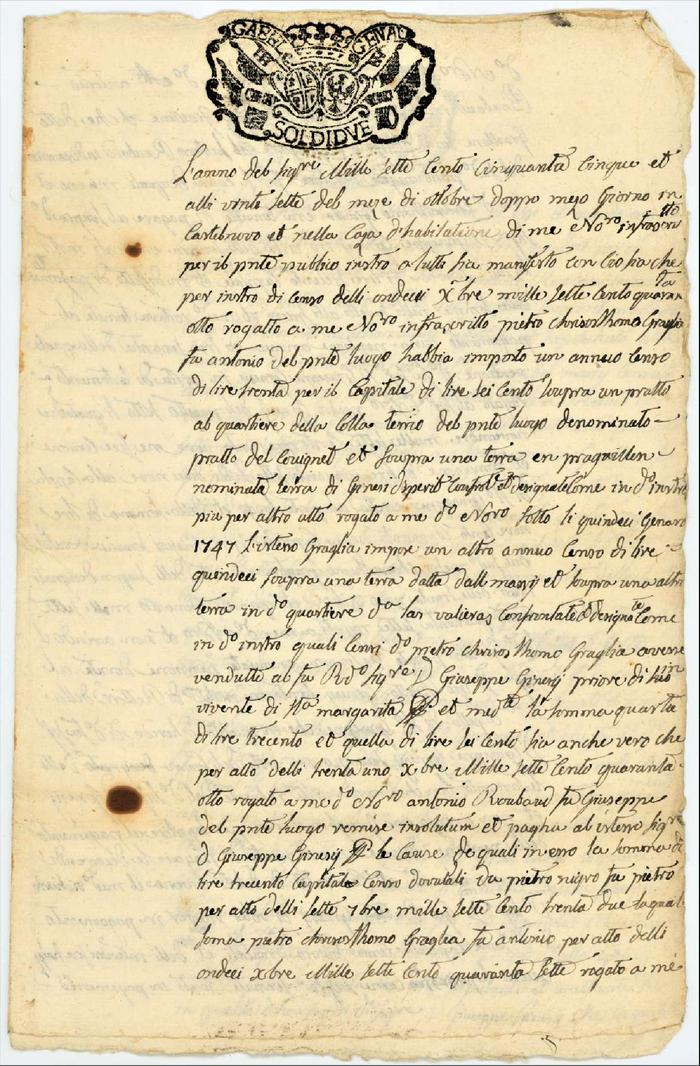 GABEL GENAL
SOLDI DVE
L'anno del sig.re Mille sette Cento Cinquanta Cinque et
alli vinte sette del meze di ottobre doppo mezo Giorno in
Castelnovo et nella Caza d'habitatione di me Noro infrascritto
per il pnte publico instro a tutti sia manifesto con Cio sia che
per instro di Censo delli ondeci xbre mille sette Cento quaranta
otto rogatto a me Noro infrascritto pietro chrisosthomo Graglia
fu antonio del pnte luogo habbia imposto un annuo Censo
di lire trenta per il Capitale di lire sei Cento soupra un pratto
al quartiere della Colla terrio del pnte luogo denominato
pratto del Couignet et soupra una terra en praquillen
nominata terra di Ginesi Come in do instro
piu per altro atto rogato a me do Noro sotto li quindeci Genaro
1747 L'isteso Graglia impose un altro annuo Censo di lire
quindeci soupra una terra datta dall massy et soupra una altra
terra in do quartiere da las valieras Confrontate et designate Come
in do instro quali Censi do pietro chrisosthomo Graglia avesse
vendutte al fu Rdo sigre D Giuseppe Ginesy priore di suo
vivente di Sta margarita et medte la somma quarta
di lire trecento et quella di lire sei Cento sia anche vero che
per atto delli trenta uno xbre Mille sette Cento quaranta
otto rogato a me do Noro antonio Roubaud fu Giuseppe
del pnte luogo remise insolutum et pagha al isteso sigre
D Giuseppe Ginesy le Cause de quali in esso la somma di
lire trecento Capitale Censo dovutali da pietro nigro fu pietro
per atto delli sette 7bre mille sette Cento trenta due laqual
soma pietro chrisosthomo Graglia fu antonio per atto delli
ondeci xbre Mille sette Cento quaranta sette rogato a me